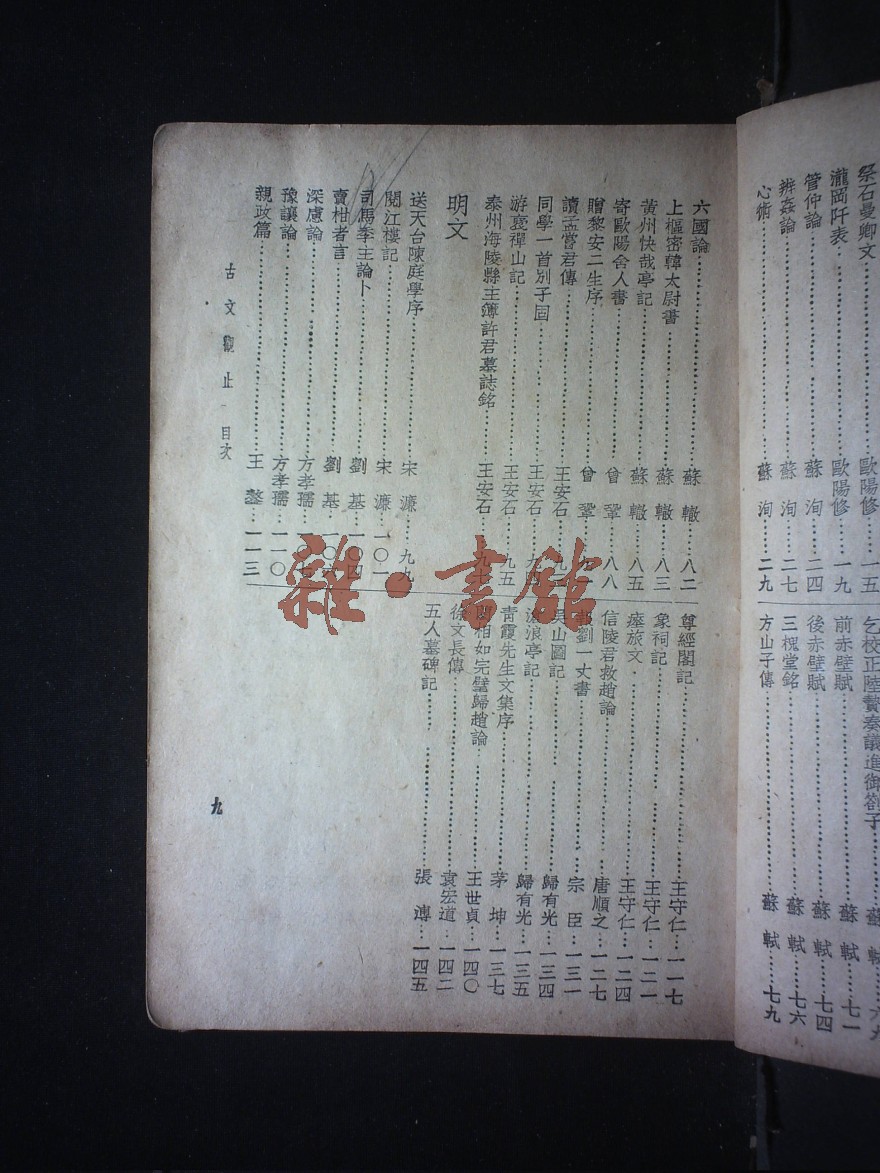 祭石曼卿文……歐陽修…一五
瀧岡阡表……歐陽修…一九
管仲論……蘇洵…二四
辨姦論……蘇洵…二七
心術……蘇洵…二九
乞校正陸贄奏議進御劄子……蘇軾…六九
前赤壁賦……蘇軾…七一
後赤壁賦……蘇軾…七四
三槐堂銘……蘇軾…七六
方山子傳……蘇軾…七九
六國論……蘇轍…八二
上樞密韓太尉書……蘇轍…八三
黃州快哉亭記……蘇轍…八五
寄歐陽舍人書……曾鞏…八八
贈黎安二生序……曾鞏…九
讀孟嘗君傳……王安石…九
同學一首別子固……王安石…九
游褒禪山記……王安石…九五
泰州海陵縣主簿許君墓誌銘……王安石…九
明文
送天台陳庭學序……宋濂…九九
閱江樓記……宋濂…一〇一
司馬季主論卜……劉基…一〇四
賣柑者言……劉基…一〇六
深慮論……方孝孺…一〇七
豫讓論……方孝孺…一一〇
親政篇……王鏊…一一三
尊經閣記……王守仁…一一七
象祠記……王守仁…一二一
瘞旅文……王守仁…一二四
信陵君救趙論……唐順之…一二七
報劉一丈書……宗臣…一三一
吳山圖記……歸有光…一三四
滄浪亭記……歸有光…一三五
青霞先生文集序……茅坤…一三七
藺相如完璧歸趙論……王世貞…一四〇
徐文長傳……袁宏道…一四二
五人墓碑記……張溥…一四五
古文觀止 目次
九
雜·書館